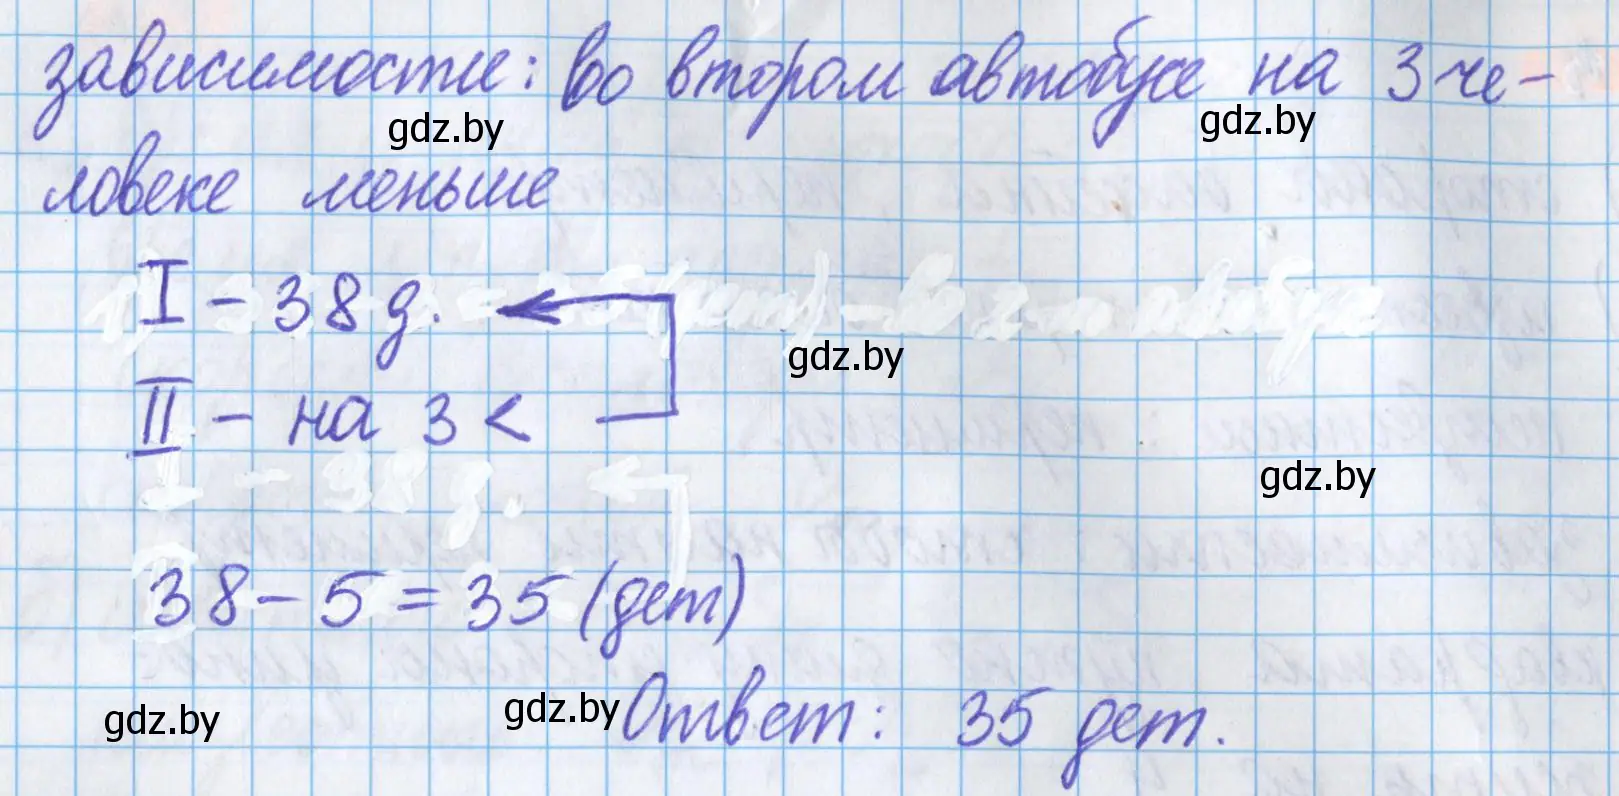 зависимости: во втором автобусе на 3 че-
gdz.by
gdz.by
ловеке меньше
I - 38 д.
gdz.by
II - на 3 <
gdz.by
38 - 5 = 35 (дет)
gdz.by
gdz.by
Ответ: 35 дет.